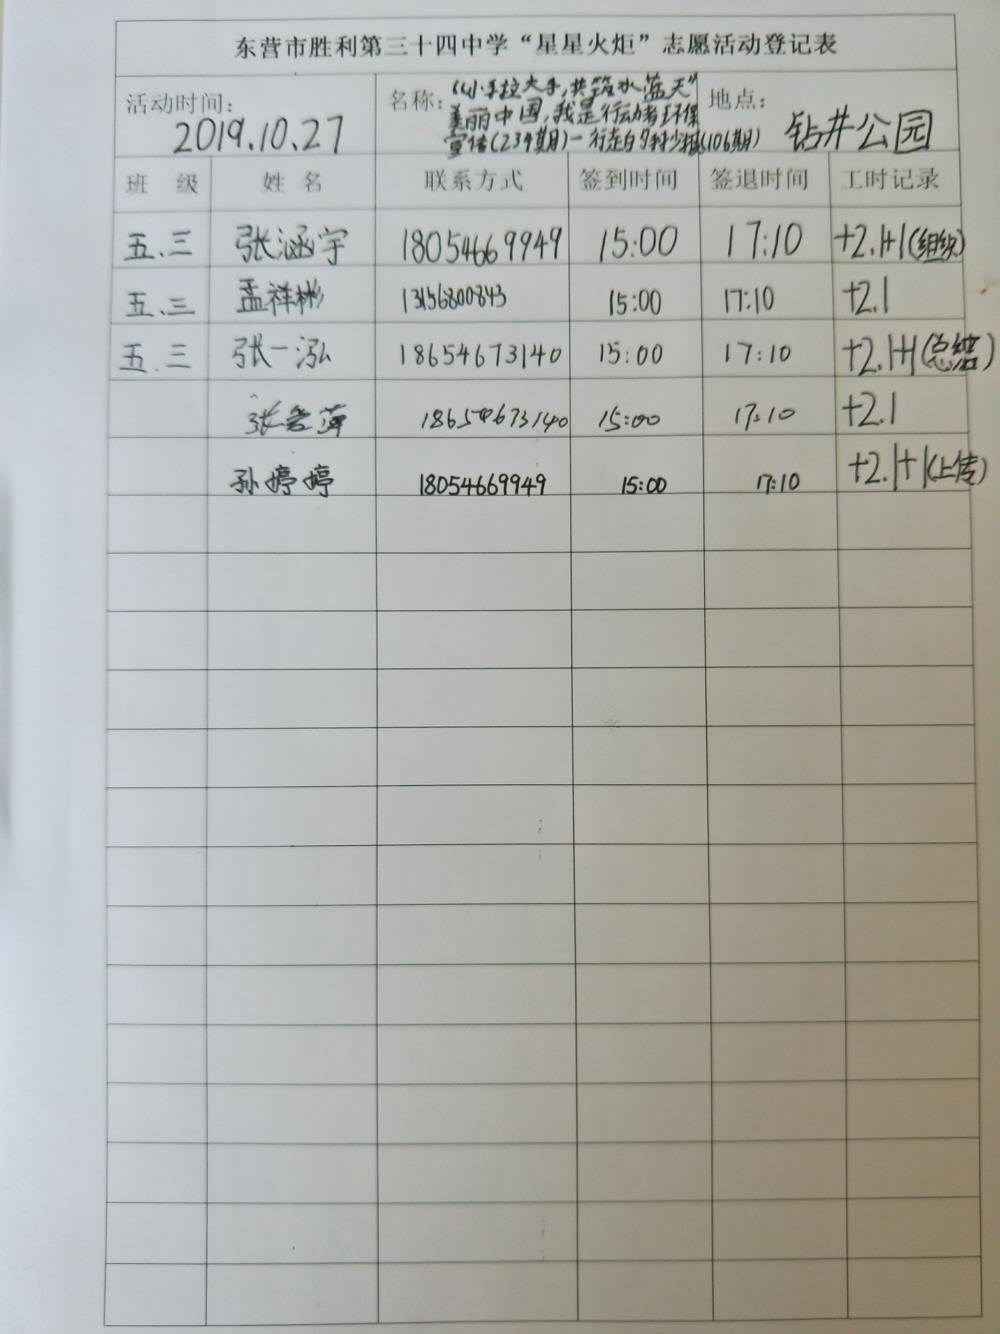 东营市胜利第三十四中学“星星火炬”志愿活动登记表
活动时间: 2019.10.27
名称: “小手拉大手,共筑水蓝天”
美丽中国,我是行动者环保
宣传(239期)一行走的
(106期)
地点: 钻井公园
班 级 姓 名 联系方式 签到时间 签退时间 工时记录
五.三 张涵宇 18054669949 15:00 17:10 +2.1+1(组织)
五.三 孟祥彬 13156800843 15:00 17:10 +2.1
五.三 张一泓 18654673140 15:00 17:10 +2.1+1(总结)
张 萍 18654673140 15:00 17:10 +2.1
孙婷婷 18054669949 15:00 17:10 +2.1+1(上传)